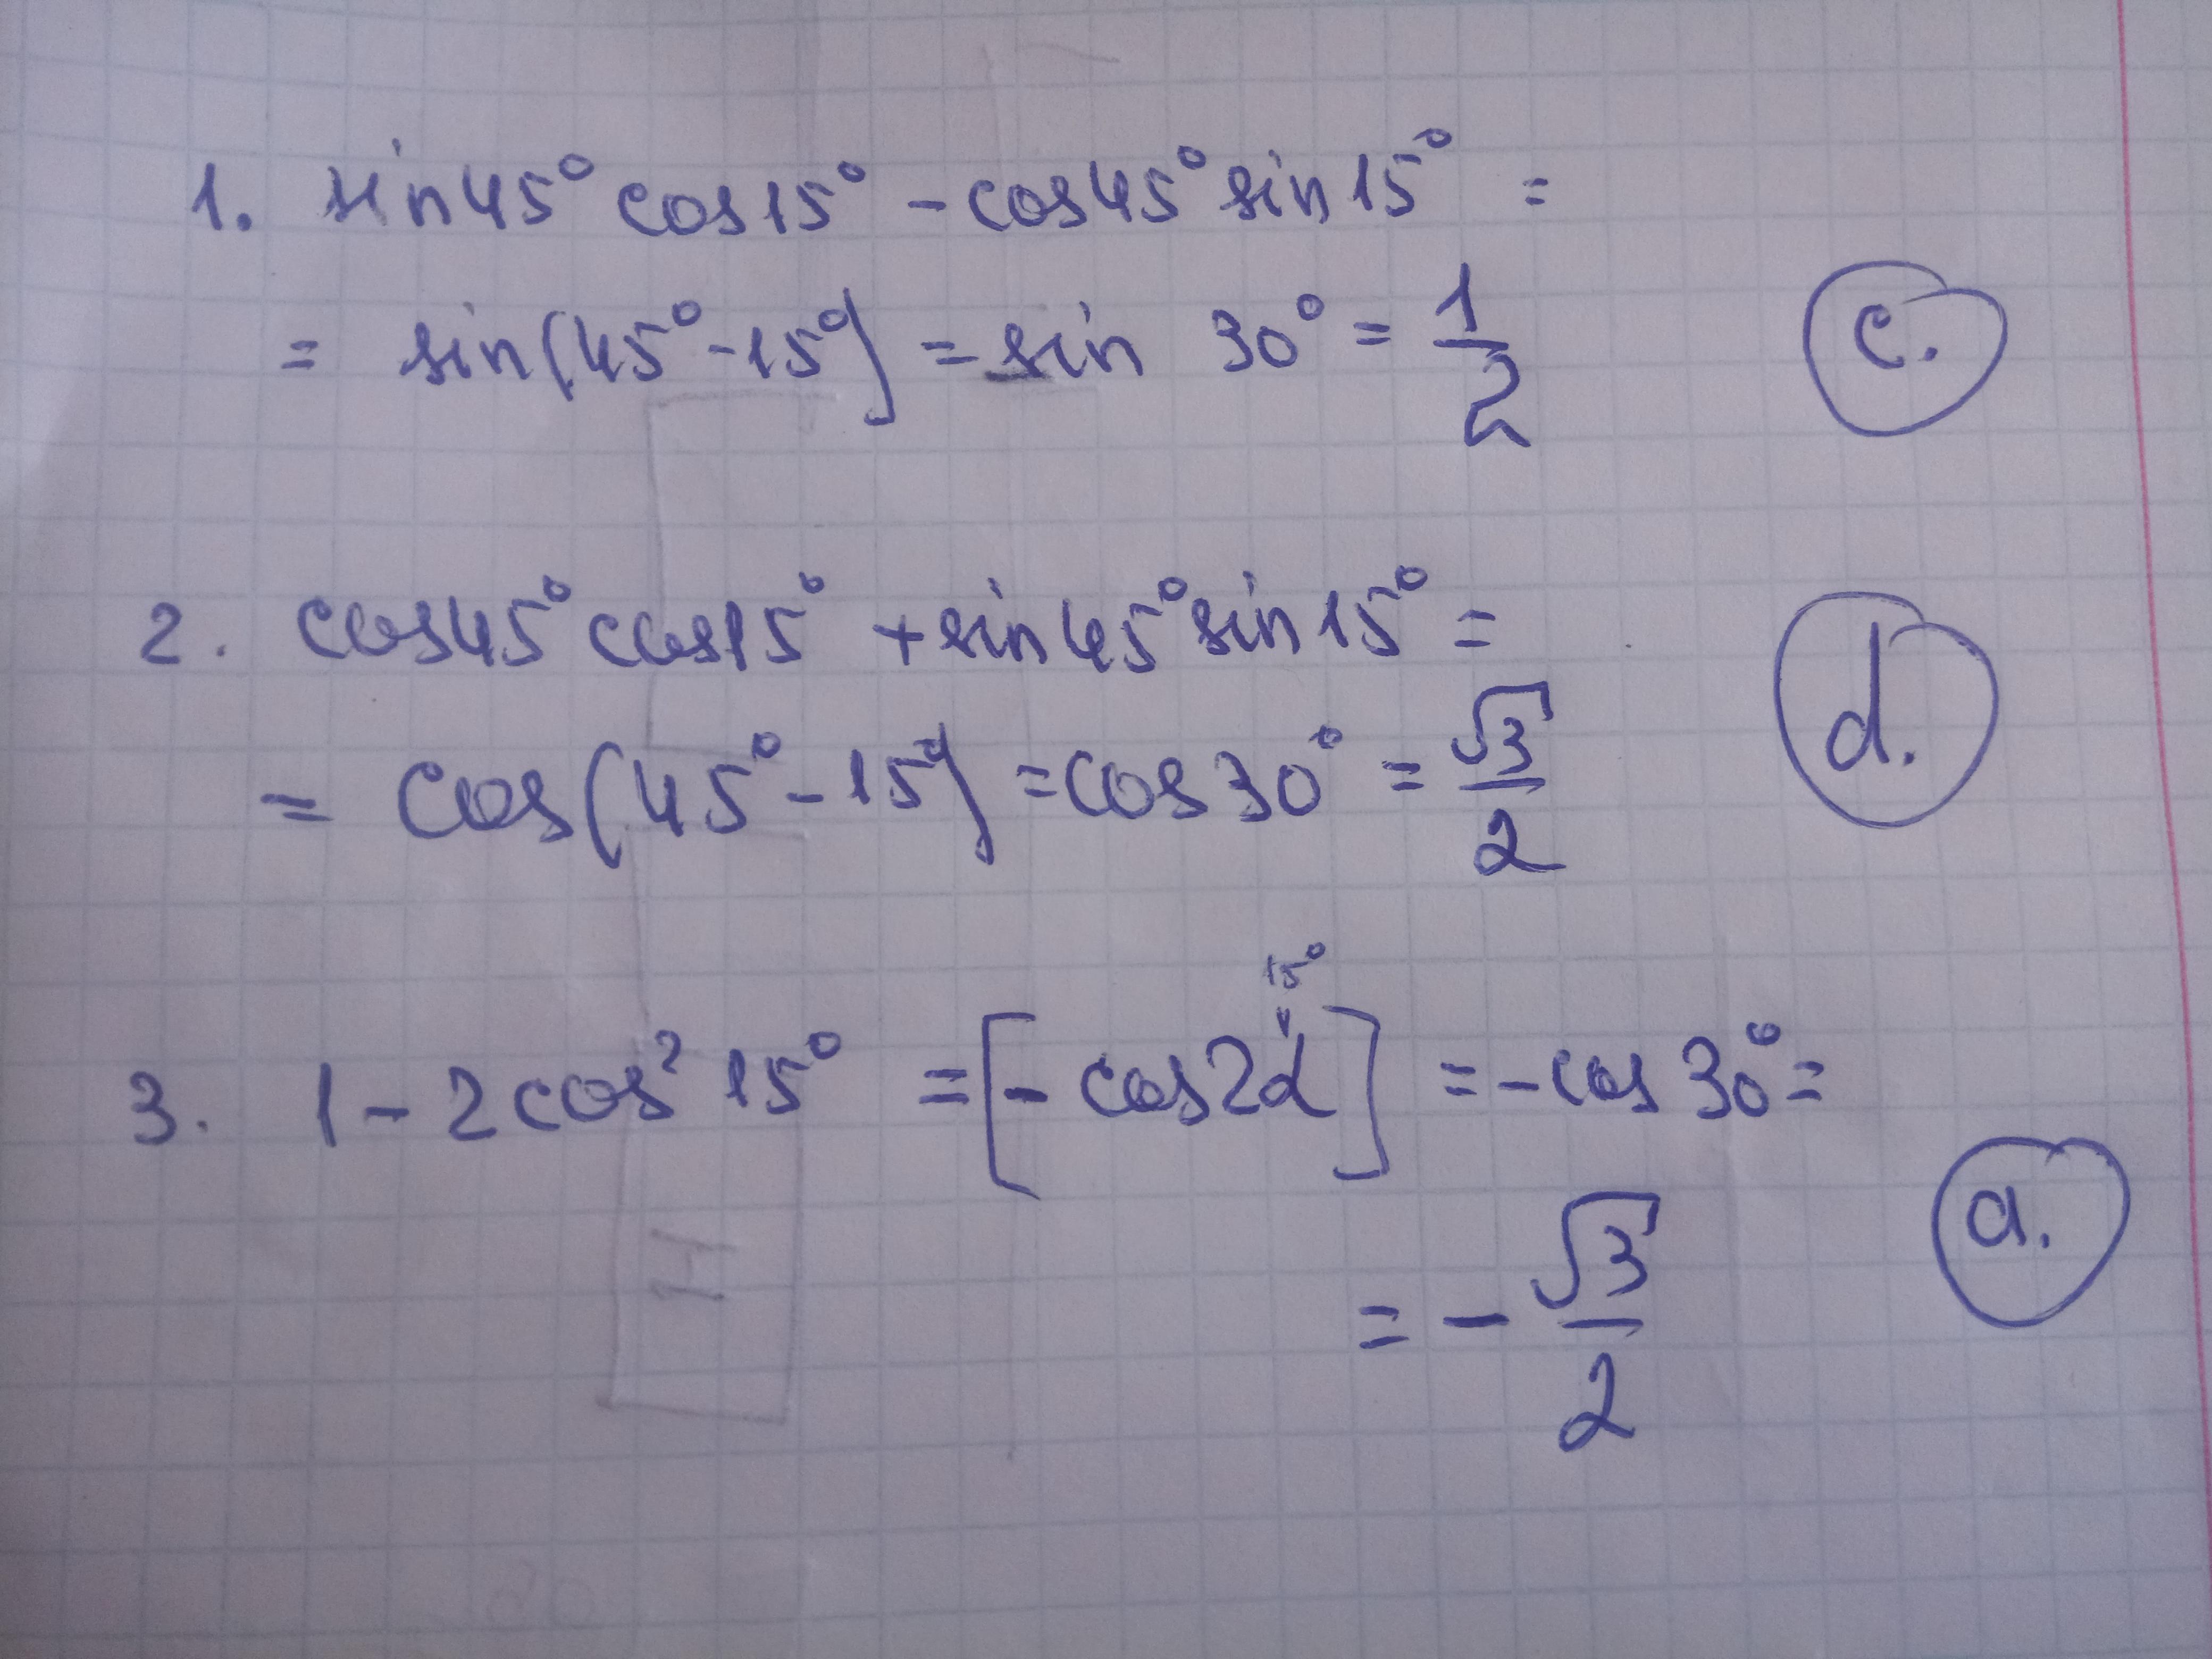 1. sin45° cos15° - cos45° sin15° =
= sin(45° - 15°) = sin 30° = 1/2
c.
2. cos45° cos15° + sin45° sin15° =
= cos(45° - 15°) = cos30° = √3/2
d.
15°
3. 1 - 2cos² 15° = [- cos2α] = - cos 30° =
= - √3/2
a.
H